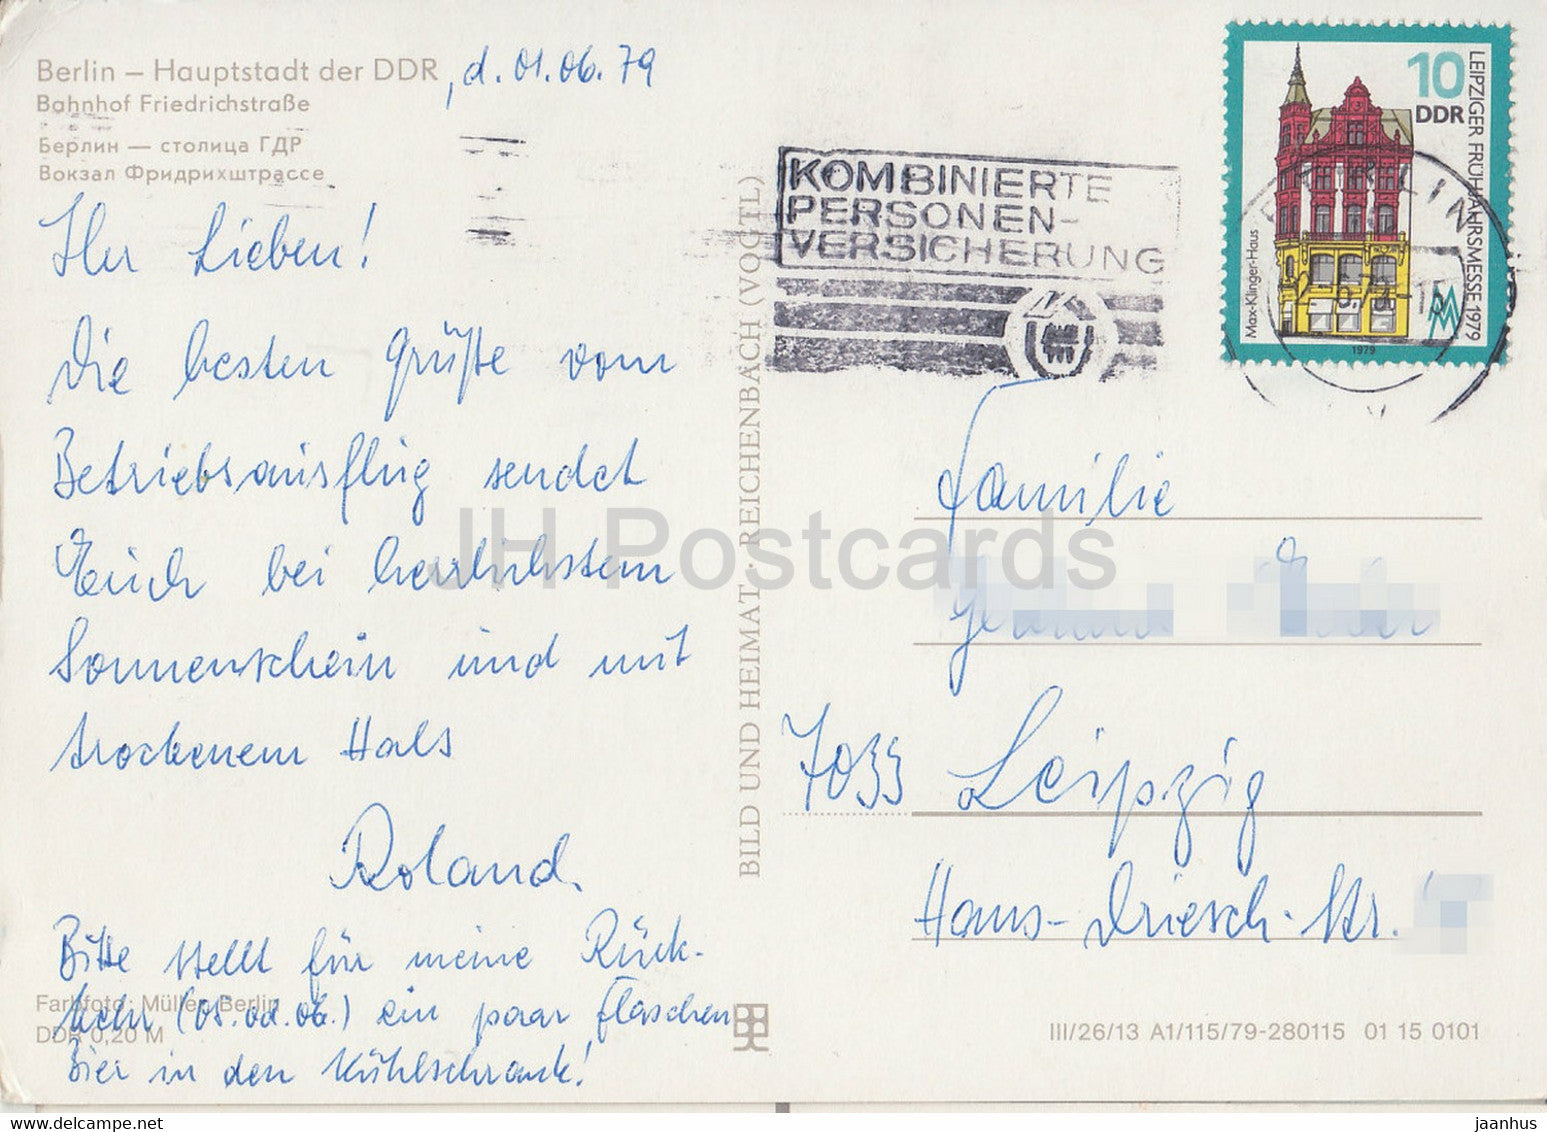 Berlin – Hauptstadt der DDR, d. 01.06.79
Bahnhof Friedrichstraße
Берлин — столица ГДР
Вокзал Фридрихштрассе
Ihr Lieben!
Die besten Grüße vom
Betriebsausflug sendet
Euch bei herrlichstem
Sonnenschein und mit
trockenem Hals
Roland.
Bitte stellt für meine Rück-
kehr (05. od. 06.) ein paar Flaschen
Bier in den Kühlschrank!
Farbfoto: Müller, Berlin
DDR 0,20 M
BILD UND HEIMAT · REICHENBACH (VOGTL)
KOMBINIERTE
PERSONEN-
VERSICHERUNG
10
DDR
LEIPZIGER FRÜHJAHRSMESSE 1979
Max-Klinger-Haus
1979
MM
BERLIN
Familie
7033 Leipzig
Hans-Driesch-Str.
III/26/13 A1/115/79-280115 01 15 0101
JH Postcards
www.delcampe.net
jaanhus